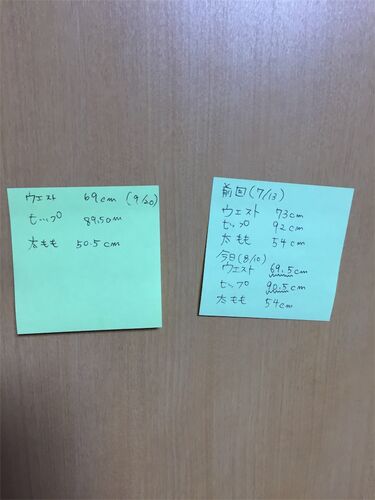 ウエスト 69cm (9/20)
ヒップ 89.5cm
太もも 50.5cm
前回(7/13)
ウエスト 73cm
ヒップ 92cm
太もも 54cm
今日(8/10)
ウエスト 69.5cm
ヒップ 90.5cm
太もも 54cm